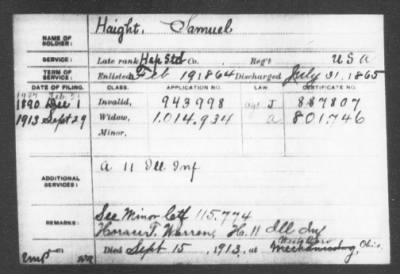 Haight, Samuel
NAME OF SOLDIER:
SERVICE: Late rank Hosp Std Co. Reg't U S A
TERM OF SERVICE: Enlisted Feb 19, 1864 Discharged July 31, 1865
DATE OF FILING. CLASS. APPLICATION NO. LAW. CERTIFICATE NO.
1890 Dec 1 Invalid, 943998 J 887807
1913 Sept 29 Widow, 1,014,934 a 801,746
Minor,
A 11 Ill Inf
ADDITIONAL SERVICES:
See Minor Ctf 115,774
REMARKS: Horace T. Warren, H. 11 Ill Inf
Died Sept 15, 1913, at Mechanicsburg, Ohio.